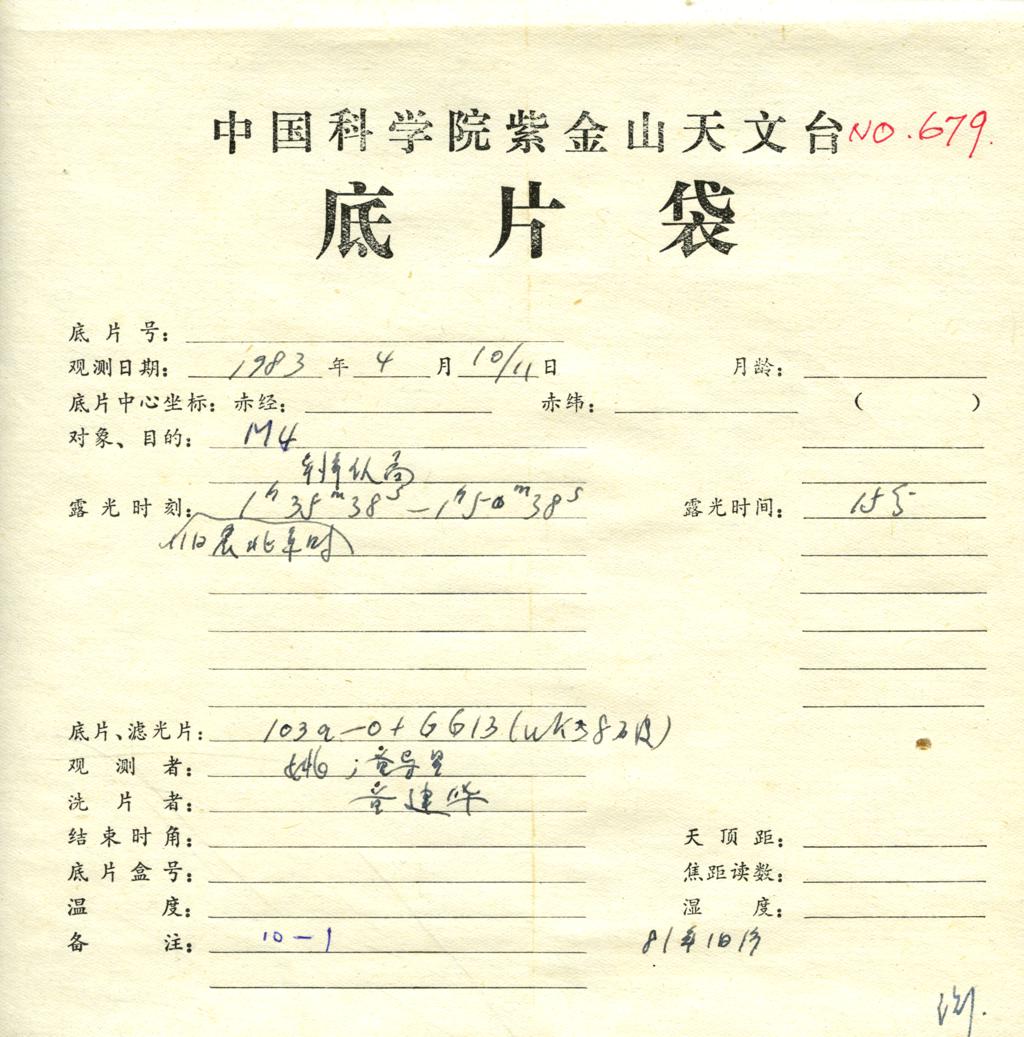 中国科学院紫金山天文台 NO.679.
底片袋
底片号：
观测日期：1983年4月10/11日 月龄：
底片中心坐标：赤经： 赤纬： （ ）
对象、目的：M4
露光时刻：1h35m38s－1h50m38s 露光时间：15分
11日晨北京时
底片、滤光片：103a-O+GG13(UK38
观测者：
洗片者：童建华
结束时角： 天顶距：
底片盒号： 焦距读数：
温度： 湿度：
备注：10-1 81年10月